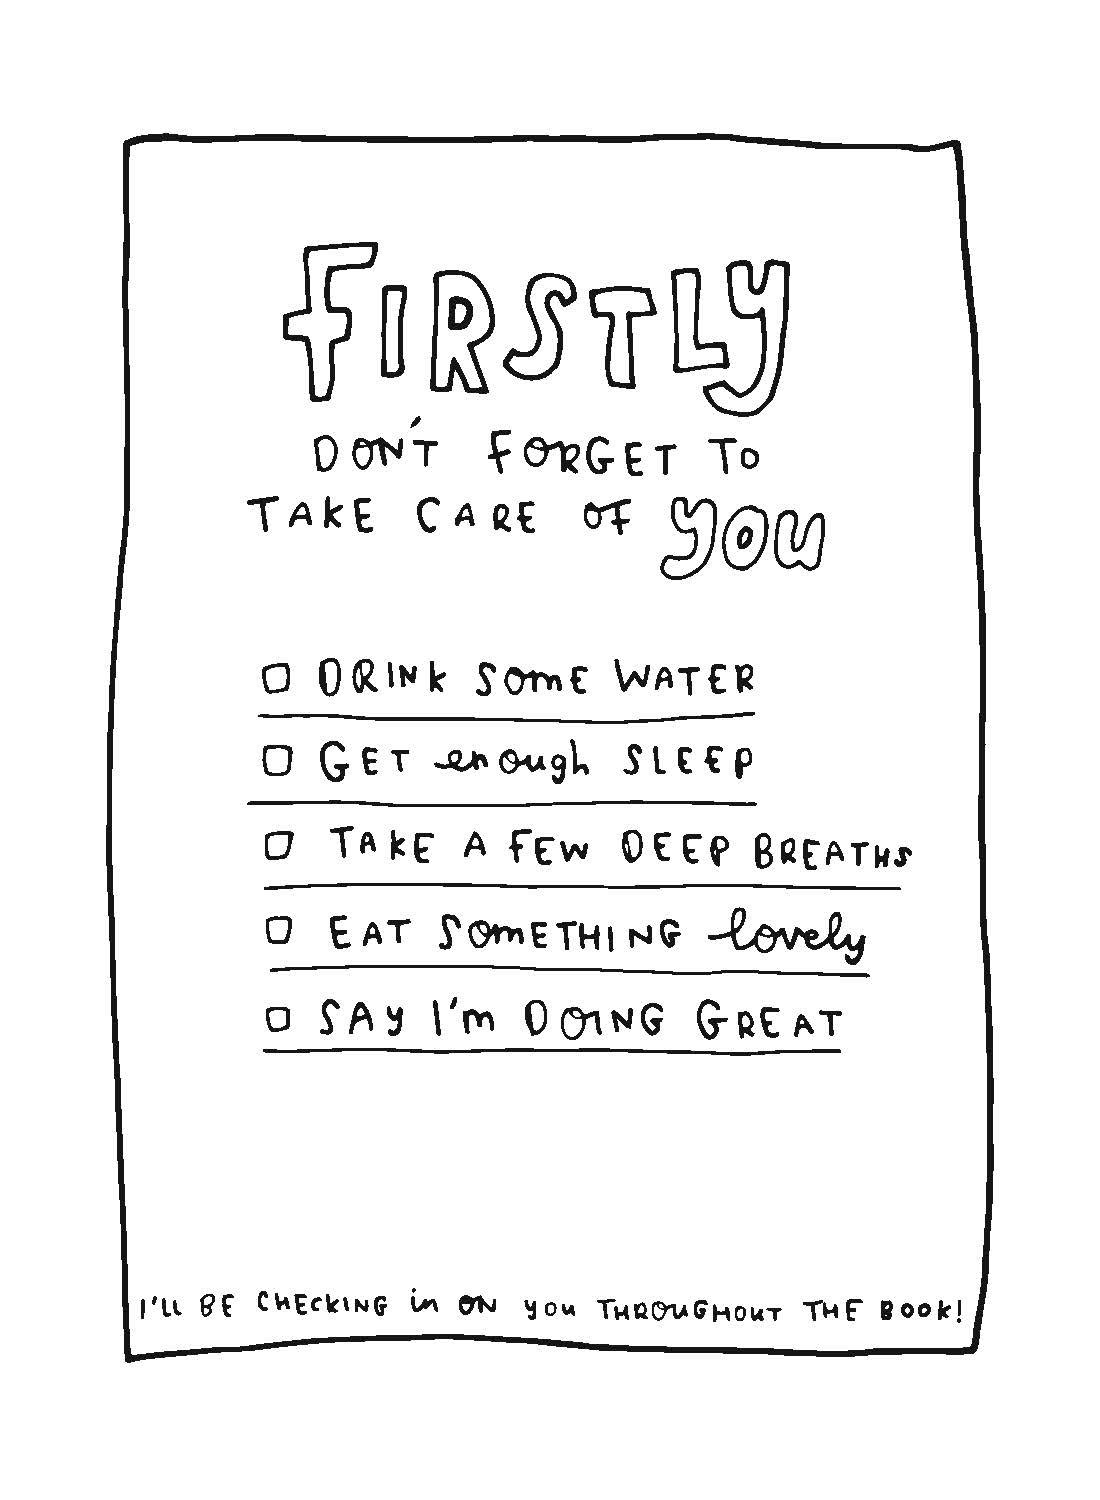 FIRSTLY
DON'T FORGET TO
TAKE CARE OF YOU
DRINK SOME WATER
GET enough SLEEP
TAKE A FEW DEEP BREATHS
EAT SOMETHING lovely
SAY I'm DOING GREAT
I'LL BE CHECKING in ON YOU THROUGHOUT THE BOOK!